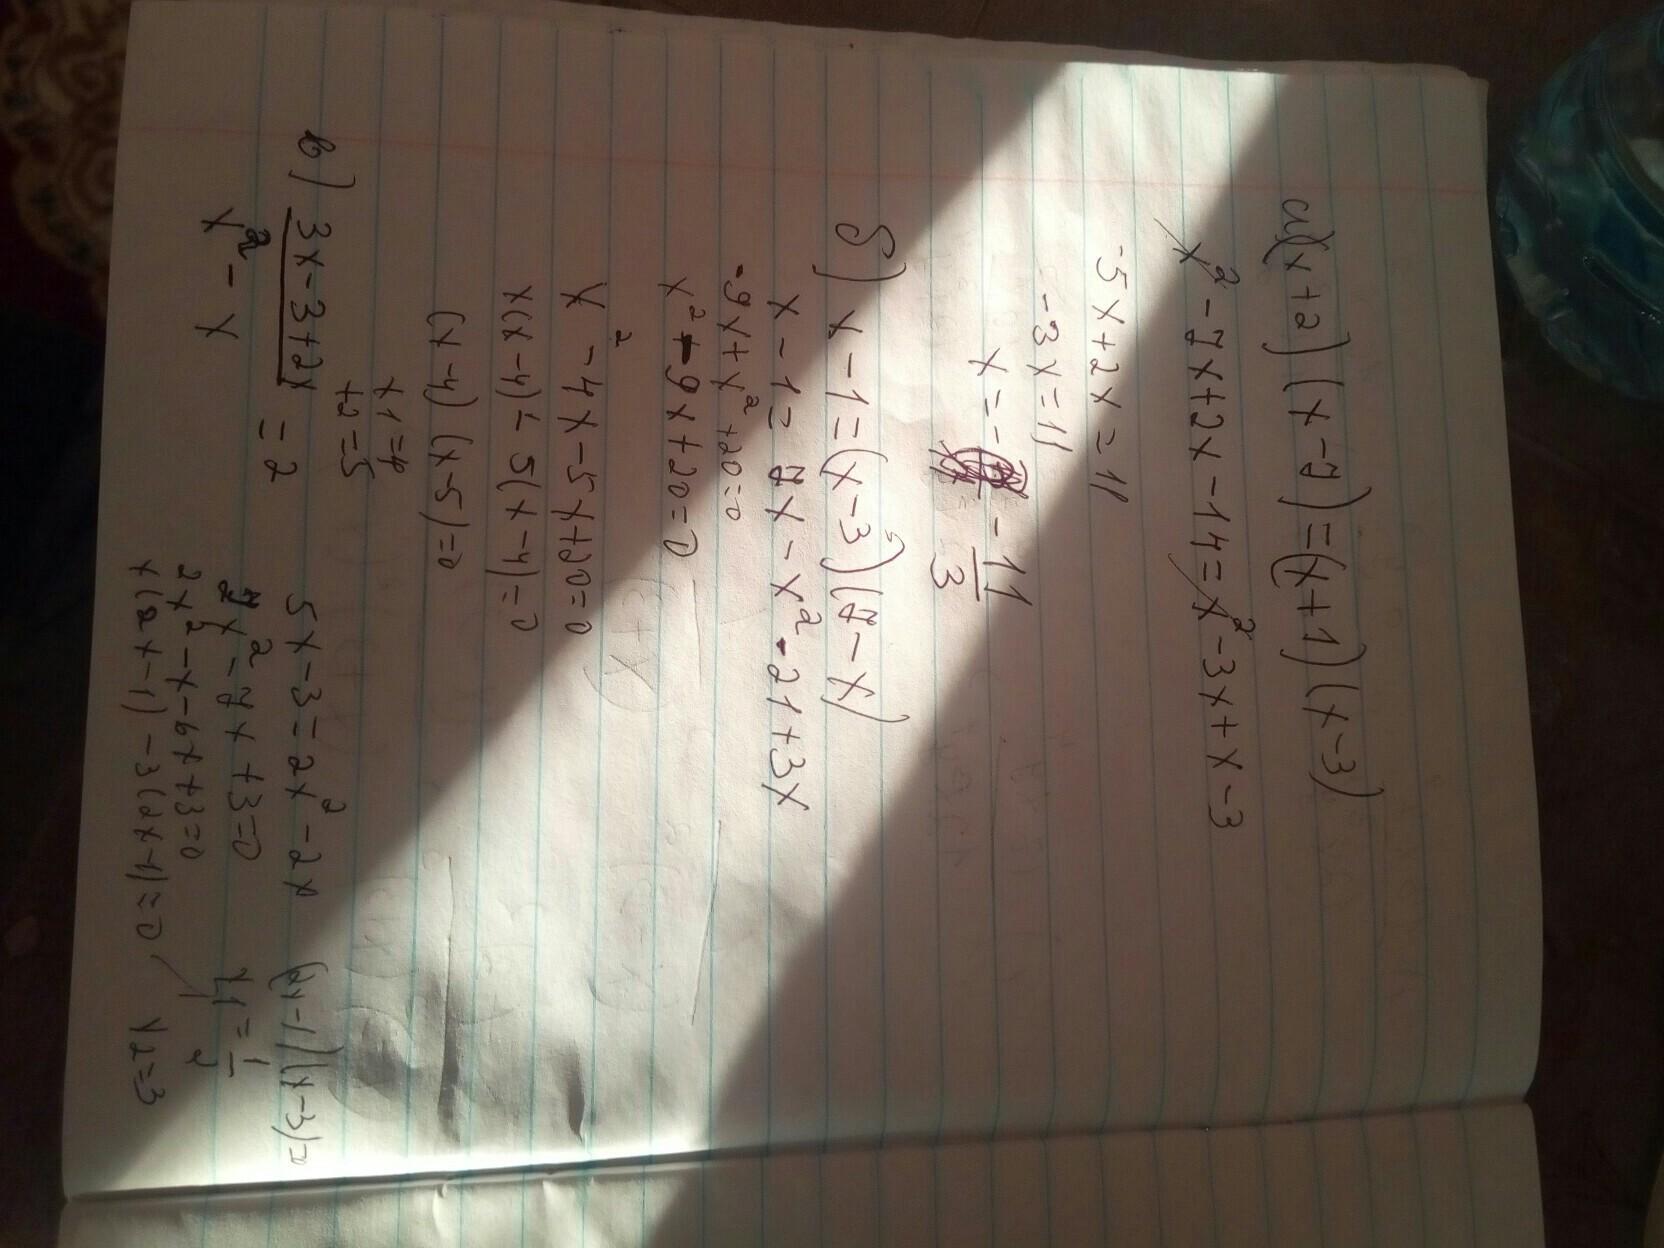 а) (x+2)(x-7)=(x+1)(x-3)
x²-7x+2x-14=x²-3x+x-3
-5x+2x=11
-3x=11
x=- -11/3
б) x-1=(x-3)(7-x)
x-1=7x-x²-21+3x
-9x+x²+20=0
x²-9x+20=0
x²-4x-5x+20=0
x(x-4)-5(x-4)=0
(x-4)(x-5)=0
x1=4
x2=5
в) 3x-3+2x/x²-x =2
5x-3=2x²-2x
2x²-7x+3=0
2x²-x-6x+3=0
x(2x-1)-3(2x-1)=0
(2x-1)(x-3)=0
x1=1/2
x2=3